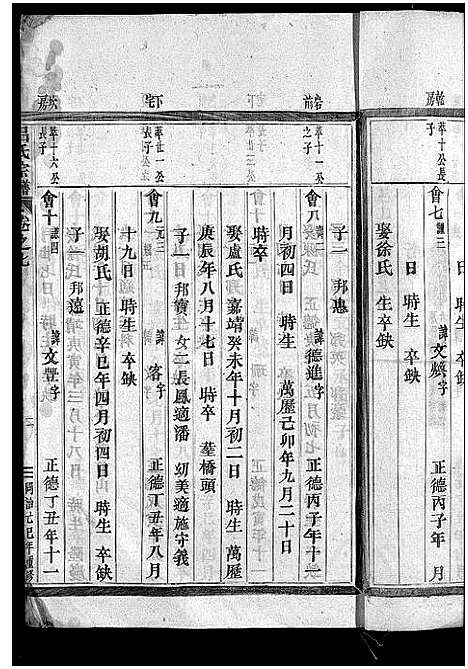 乾房
萃十公長子
會七 諱文燦字 正德丙子年 月
日 時生 卒缺
娶徐氏 生卒缺
岩前
萃十一公之子
會八 諱 正德進字 正德丙子年十一
月初四日 時生 萬歷己卯年九月二十日
時卒
娶盧氏 嘉靖癸未年十月初二日 時生 萬歷
庚辰年八月十七日 時卒 葬橋頭
子一 邦憲
下宅
萃廿一公長子
會九 諱 容字 正德丁丑年八月
十九日 時生 卒缺
娶胡氏 正德辛巳年四月初四日 時生 卒缺
子一 邦寶 女二 長鳳適潘 幼美適施守義
房
萃十六公長子
會十 諱文豐字 正德丁丑年十一
子一 邦遠
氏宗譜
卷之七
同治元巳年重修